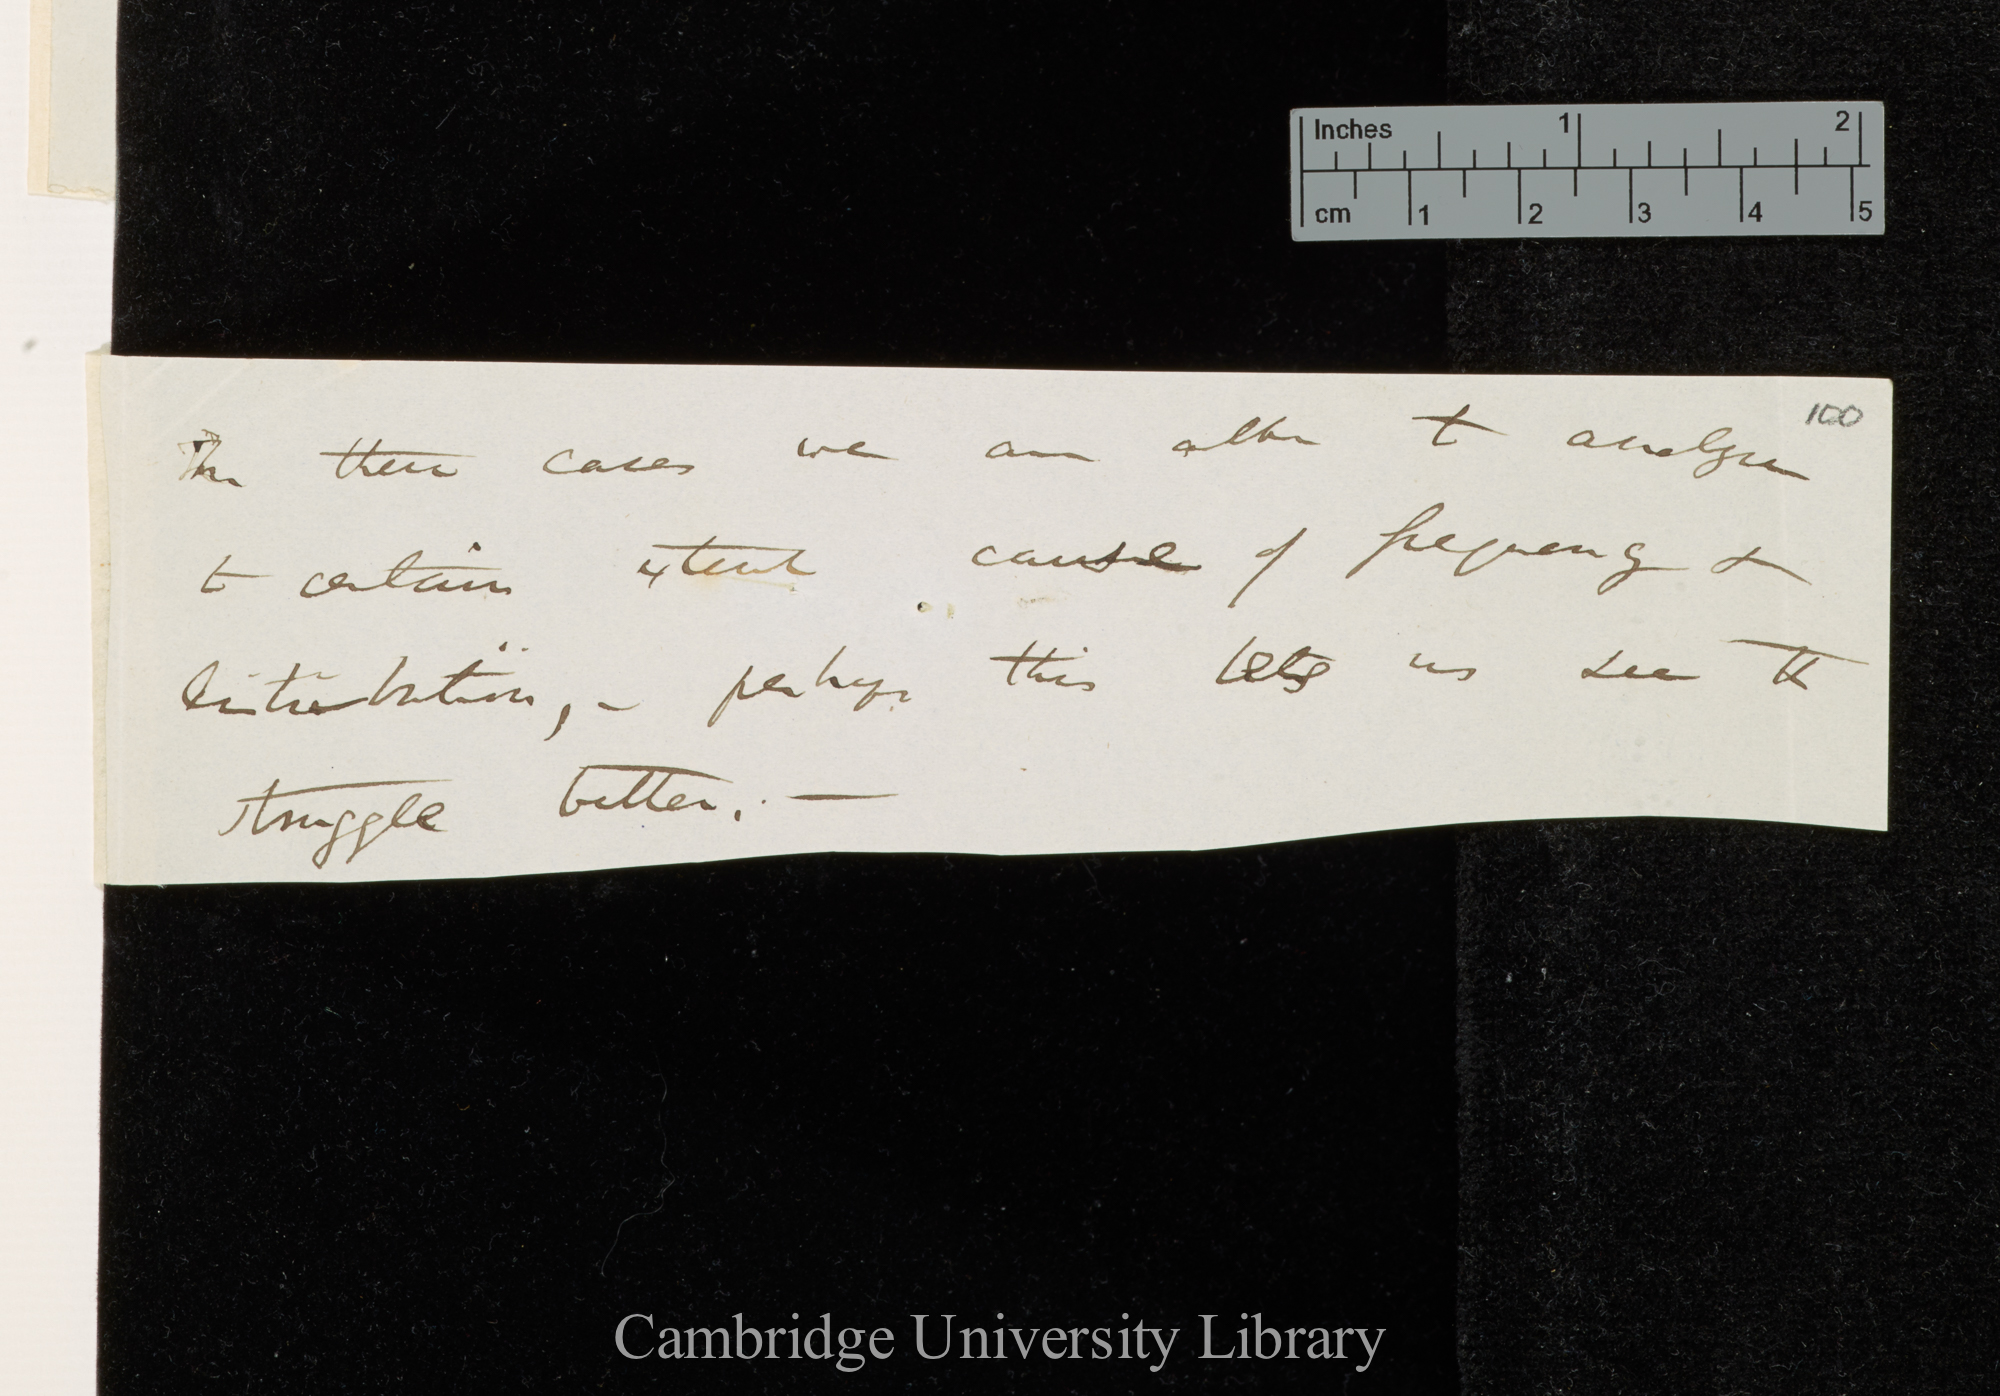 Inches 1 2
cm 1 2 3 4 5
100
In these cases we are able to analyse
to certain extent cause of frequency &
distribution, – perhaps this lets us see the
struggle better. —
Cambridge University Library